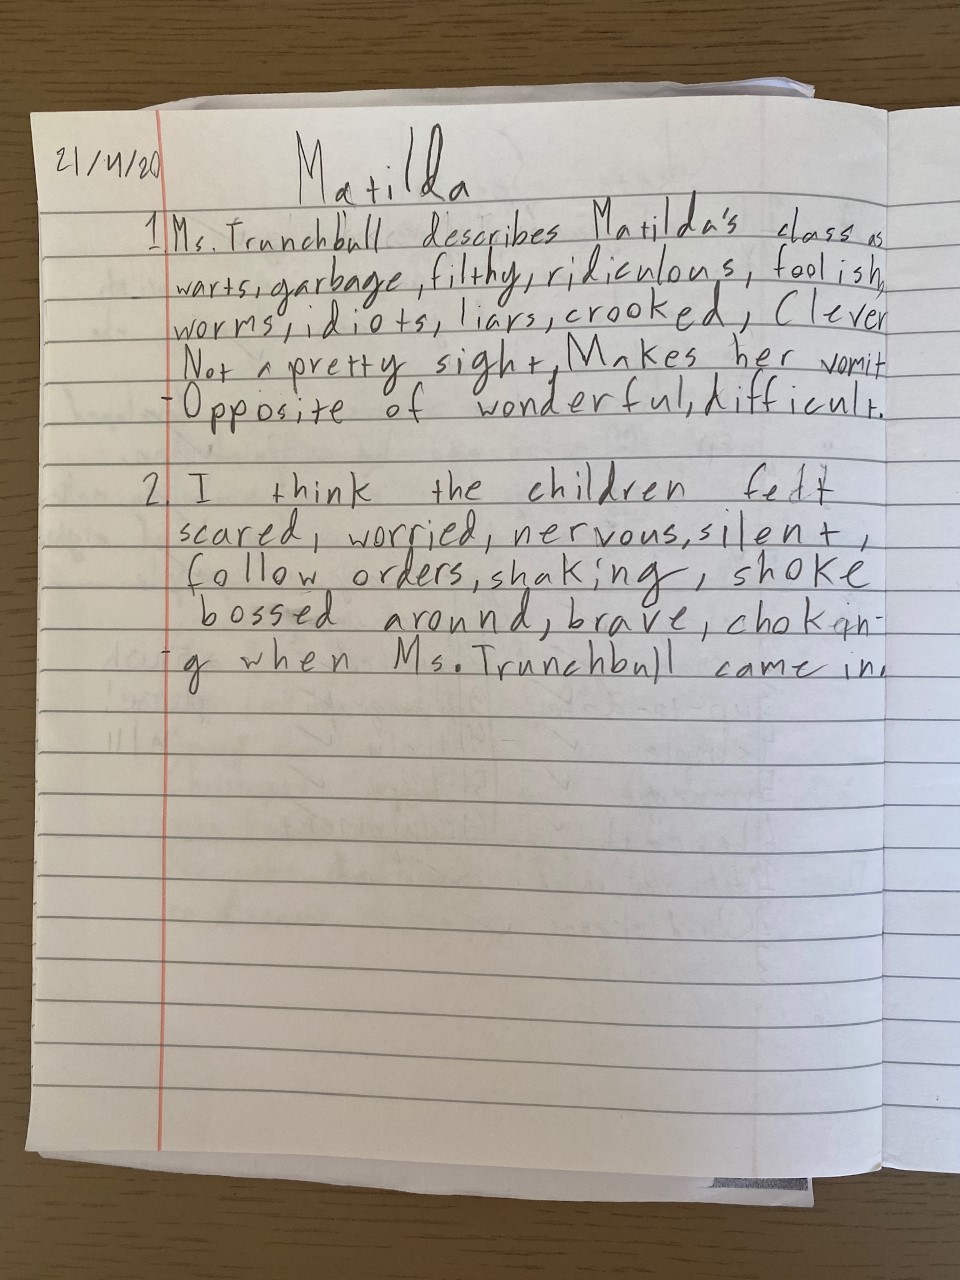 21/4/20
Matilda
1. Ms. Trunchbull describes Matilda's class as
warts, garbage, filthy, ridiculous, foolish,
worms, idiots, liars, crooked, Clever
Not a pretty sight, Makes her vomit
-Opposite of wonderful, difficult.
2. I think the children felt
scared, worried, nervous, silent,
follow orders, shaking, shoke
bossed around, brave, chokin-
-g when Ms. Trunchbull came in.